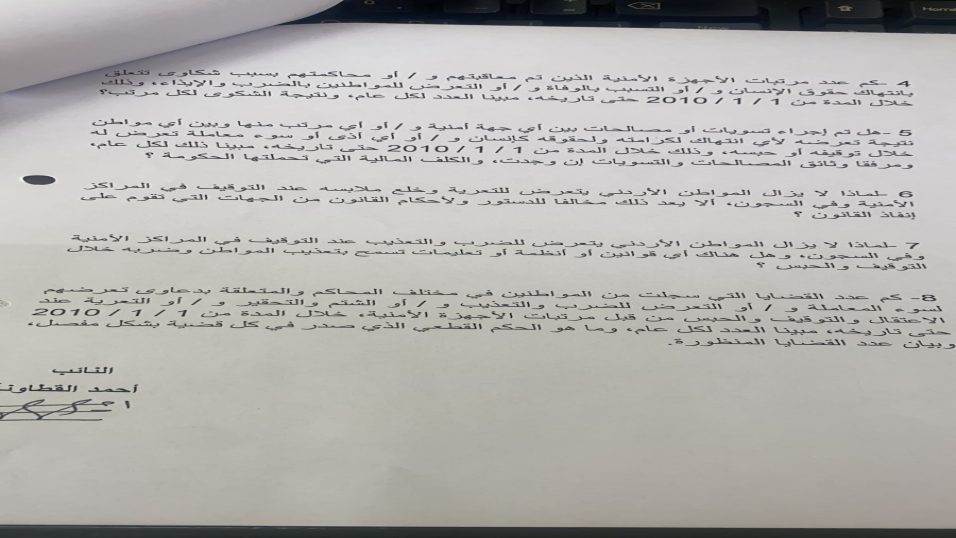 4 -كم عدد مرتبات الأجهزة الأمنية الذين تم معاقبتهم و / أو محاكمتهم بسبب شكاوى تتعلق
بانتهاك حقوق الإنسان و / أو التسبب بالوفاة و / أو التعرض للمواطنين بالضرب والإيذاء، وذلك
خلال المدة من 1 / 1 / 2010 حتى تاريخه، مبينا العدد لكل عام، ونتيجة الشكوى لكل مرتب؟
5 -هل تم إجراء تسويات أو مصالحات بين أي جهة أمنية و / أو أي مرتب منها وبين أي مواطن
نتيجة تعرضه لأي انتهاك لكرامته ولحقوقه كإنسان و / أو أي أذى أو سوء معاملة تعرض له
خلال توقيفه أو حبسه، وذلك خلال المدة من 1 / 1 / 2010 حتى تاريخه، مبينا ذلك لكل عام،
ومرفقا وثائق المصالحات والتسويات إن وجدت، والكلف المالية التي تحملتها الحكومة ؟
6 -لماذا لا يزال المواطن الأردني يتعرض للتعرية وخلع ملابسه عند التوقيف في المراكز
الأمنية وفي السجون، ألا يعد ذلك مخالفا للدستور ولأحكام القانون من الجهات التي تقوم على
إنفاذ القانون ؟
7 -لماذا لا يزال المواطن الأردني يتعرض للضرب والتعذيب عند التوقيف في المراكز الأمنية
وفي السجون، وهل هناك أي قوانين أو أنظمة أو تعليمات تسمح بتعذيب المواطن وضربه خلال
التوقيف والحبس ؟
8- كم عدد القضايا التي سجلت من المواطنين في مختلف المحاكم والمتعلقة بدعاوى تعرضهم
لسوء المعاملة و / أو التعرض للضرب والتعذيب و / أو الشتم والتحقير و / أو التعرية عند
الاعتقال والتوقيف والحبس من قبل مرتبات الأجهزة الأمنية، خلال المدة من 1 / 1 / 2010
حتى تاريخه، مبينا العدد لكل عام، وما هو الحكم القطعي الذي صدر في كل قضية بشكل مفصل،
وبيان عدد القضايا المنظورة.
النائب
أحمد القطاونة